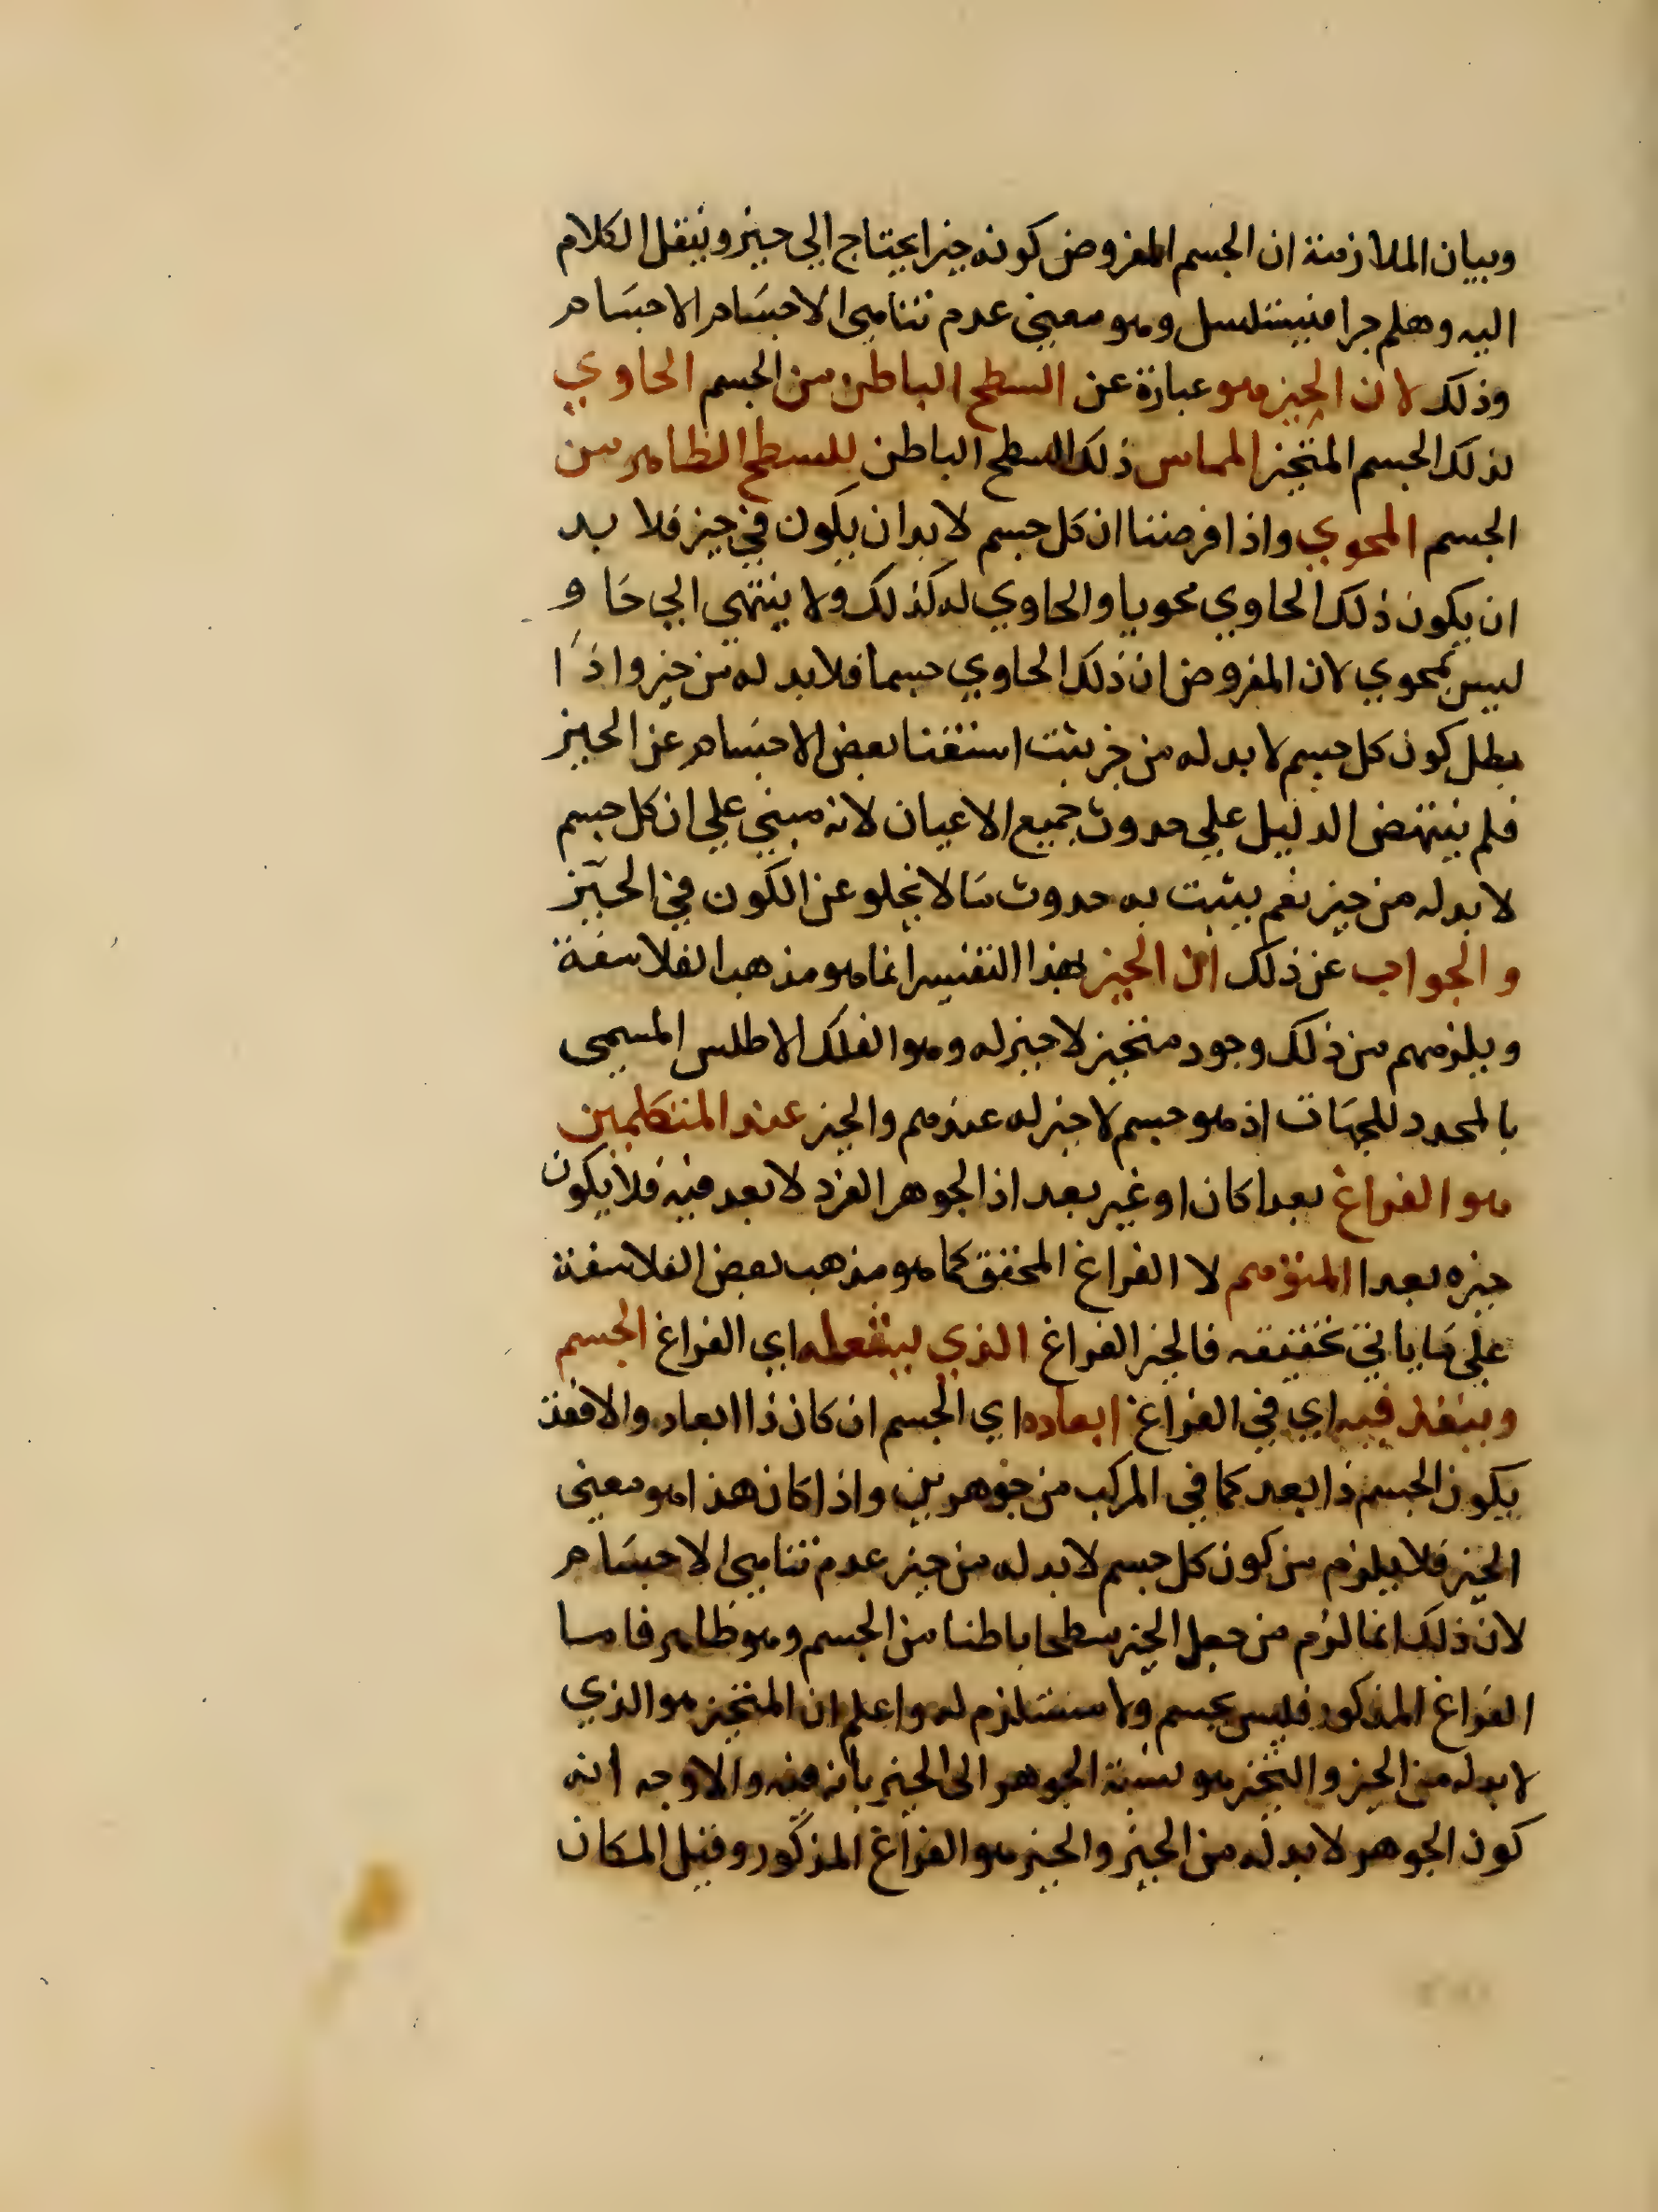 وبيان الملازمة ان الجسم المفروض كونه حيزا يحتاج الي حيز وينقل الكلام
اليه وهلم جرا فيتسلسل وهو معني عدم تناهي الاجسام الاجسام
وذلك لان الحيز هو عبارة عن السطح الباطن من الجسم الحاوي
لذلك الجسم المتحيز المماس ذلك السطح الباطن للسطح الظاهر من
الجسم المحوي واذا فرضنا ان كل جسم لا بد ان يكون في حيز فلا بد
ان يكون ذلك الحاوي محويا والحاوي له كذلك ولا ينتهي الي حاو
ليس بمحوي لان المفروض ان ذلك الحاوي جسما فلا بد له من حيز واذا
بطل كون كل جسم لا بد له من حيز ثبت استغنا بعض الاجسام عن الحيز
فلم ينتهض الدليل علي حدوث جميع الاعيان لانه مبني علي ان كل جسم
لا بد له من حيز نعم يثبت به حدوث ما لا يخلو عن الكون في الحيّز
والجواب عن ذلك ان الحيز بهذا التفسير انما هو مذهب الفلاسفة
ويلزمهم من ذلك وجود متحيز لا حيز له وهو الفلك الاطلس المسمى
بالمحدد للجهات اذ هو جسم لا حيز له عندهم والحيز عند المتكلمين
هو الفراغ بعدا كان او غير بعد اذ الجوهر الفرد لا بعد فيه فلا يكون
حيزه بعدا المتوهم لا الفراغ المحقق كما هو مذهب بعض الفلاسفة
علي ما ياتي تحقيقه فالحيز الفراغ الذي يشغله اي الفراغ الجسم
وينفذ فيه اي في الفراغ ابعاده اي الجسم ان كان ذا ابعاد والا فقد
يكون الجسم ذا بعد كما في المركب من جوهرين واذا كان هذا هو معني
الحيز فلا يلزم من كون كل جسم لا بد له من حيز عدم تناهي الاجسام
لان ذلك انما لزم من جعل الحيز سطحا باطنا من الجسم وهو ظاهر فاما
الفراغ المذكور فليس بجسم ولا مستلزم له واعلم ان المتحيز هو الذي
لا بد له من الحيز والتحيز هو نسبة الجوهر الى الحيز بانه فيه والاوجه انه
كون الجوهر لا بد له من الحيز والحيز هو الفراغ المذكور وقيل المكان